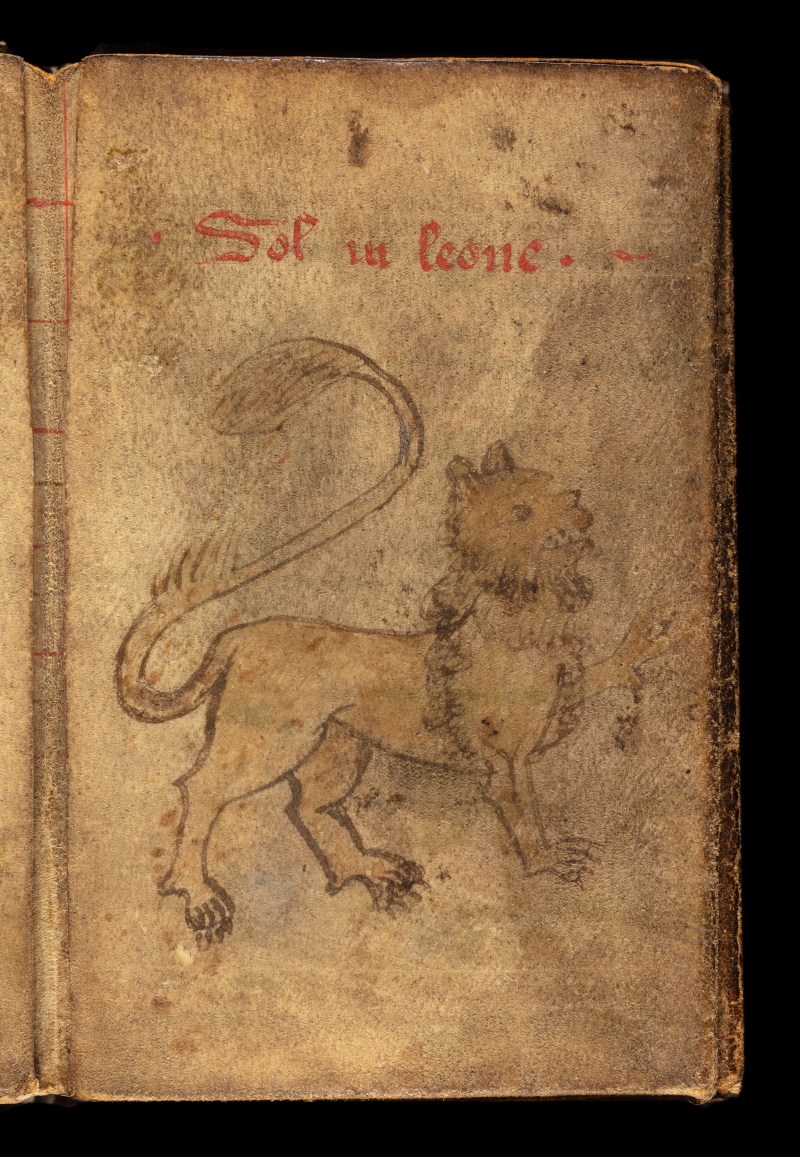 · Sol in leone ·